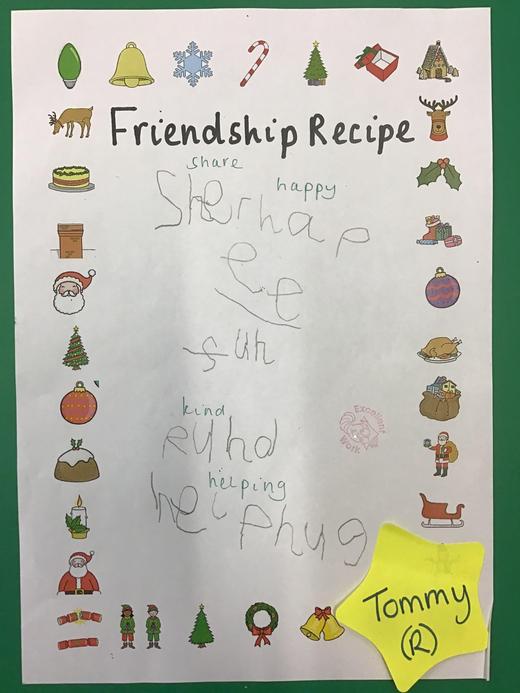 Friendship Recipe
share
happy
Sherhap
ee
fun
kind
cuhd
helping
hel
Phug
Excellent
Work
Tommy
(R)